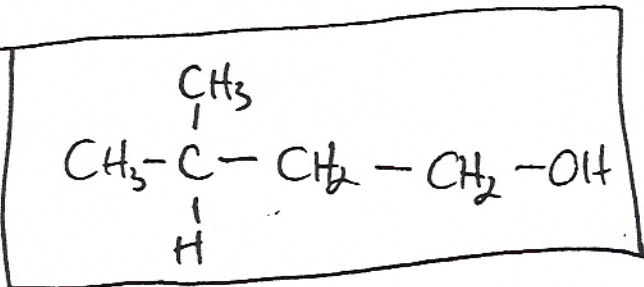 CH₃
CH₃-C-CH₂-CH₂-OH
H